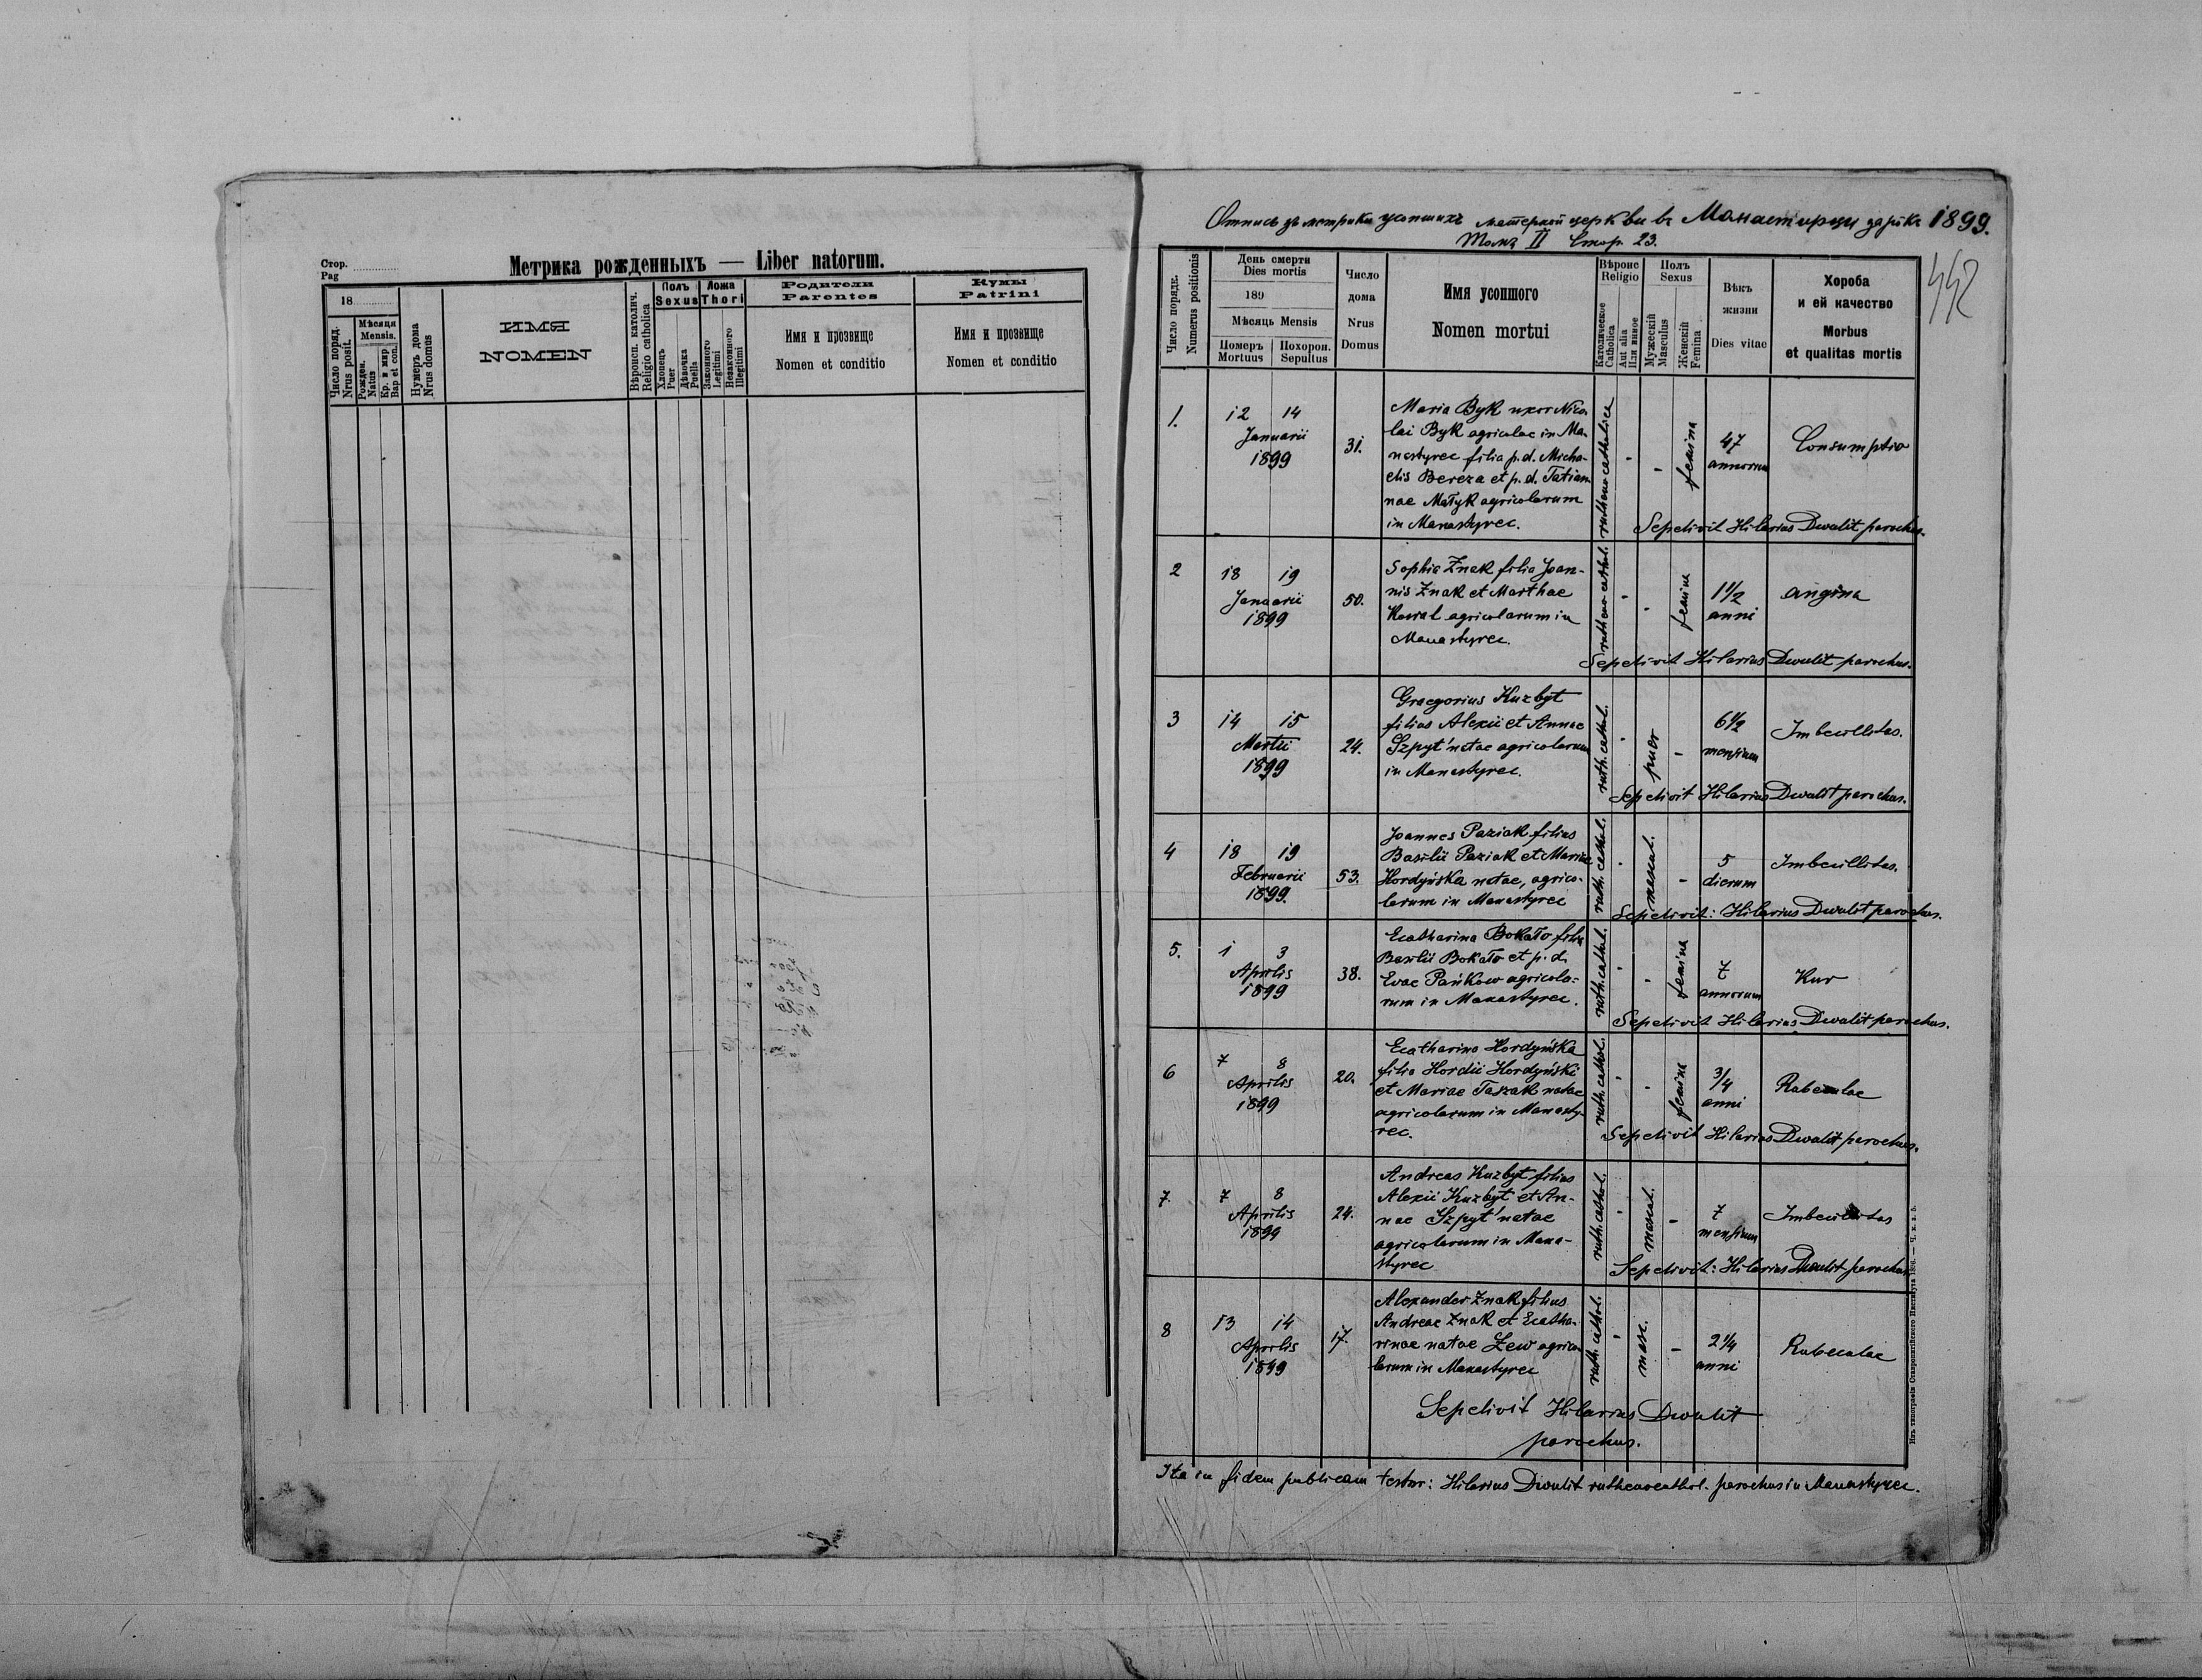 Стор.
Pag
Метрика рожденныхъ — Liber natorum.
18
Число поряд.
Nrus posit.
Мѣсяця
Mensis.
Рожден.
Natus
Кр. и мѵр
Bap et con.
Нумеръ дома
Nrus domus
ИМЯ
NOMEN
Вѣроисп. католич.
Religio catholica
Полъ
Sexus
Хлопецъ
Puer
Дѣвочка
Puella
Ложа
Thori
Законного
Legitimi
Незаконного
Illegitimi
Родители
Parentes
Имя и прозвище
Nomen et conditio
Кумы
Patrini
Имя и прозвище
Nomen et conditio
Отпись зъ метрики усопшихъ матерной церкви въ Манастирци за рôкъ 1899.
Томъ II Стор. 23.
442
Число порядк.
Numerus positionis
День смерти
Dies mortis
189
Мѣсяць Mensis
Померъ
Mortuus
Похорон.
Sepultus
Число
дома
Nrus
Domus
Имя усопшого
Nomen mortui
Вѣроис
Religio
Католическое
Catholica
Aut alia
Или инное
Полъ
Sexus
Мужескій
Masculus
Женскій
Femina
Вѣкъ
жизни
Dies vitae
Хороба
и ей качество
Morbus
et qualitas mortis
1.
12 14
Januarii
1899
31.
Maria Byk uxor Nico-
lai Byk agricolae in Ma-
nastyrec filia p.d. Micha-
elis Bereza et p.d. Tatian-
nae Matyk agricolarum
in Manastyrec.
rutheno catholica
femina
47
annorum
Consumptio
Sepelivit Hilarius Dwulit parochus.
2
18 19
Januarii
1899
50.
Sophia Znak filia Joan-
nis Znak et Marthae
Kowal agricolarum in
Manastyrec.
rutheno cathol.
femina
1 1/2
anni
angina
Sepelivit Hilarius Dwulit parochus.
3
14 15
Martii
1899
24.
Gregorius Kuzbyt
filius Alexii et Annae
Szpyt' natae agricolarum
in Manastyrec.
ruth. cathol.
puer
6 1/2
mensium
Imbecillitas.
Sepelivit Hilarius Dwulit parochus.
4
18 19
Februarii
1899.
53.
Joannes Paziak filius
Basilii Paziak et Mariae
Hordyńska natae, agrico-
larum in Manastyrec
ruth. cathol.
mascul.
5
dierum
Imbecillitas.
Sepelivit: Hilarius Dwulit parochus.
5.
1 3
Aprilis
1899
38.
Ecatharina Bokało filia
Basilii Bokało et p.d.
Evae Pańkow agricola-
rum in Manastyrec.
ruth. cathol.
femina
7
annorum
Kur
Sepelivit Hilarius Dwulit parochus.
6
7 8
Aprilis
1899
20.
Ecatharina Hordyńska
filia Hordii Hordyński
et Mariae Taszak natae
agricolarum in Manasty-
rec.
ruth. cathol.
femina
3/4
anni
Rubeolae
Sepelivit Hilarius Dwulit parochus.
7.
7 8
Aprilis
1899
24.
Andreas Kuzbyt filius
Alexii Kuzbyt et An-
nae Szpyt' natae
agricolarum in Mana-
styrec
ruth. cathol.
mascul.
7
mensium
Imbecillitas
Sepelivit: Hilarius Dwulit parochus
8
13 14
Aprilis
1899
17.
Alexander Znak filius
Andreae Znak et Ecatha-
rinae natae Zew agrico-
larum in Manastyrec
ruth. cathol.
masc.
2 1/4
anni
Rubeolae
Sepelivit Hilarius Dwulit
parochus.
Ita in fidem publicam testor: Hilarius Dwulit ruthenocathol. parochus in Manastyrec.